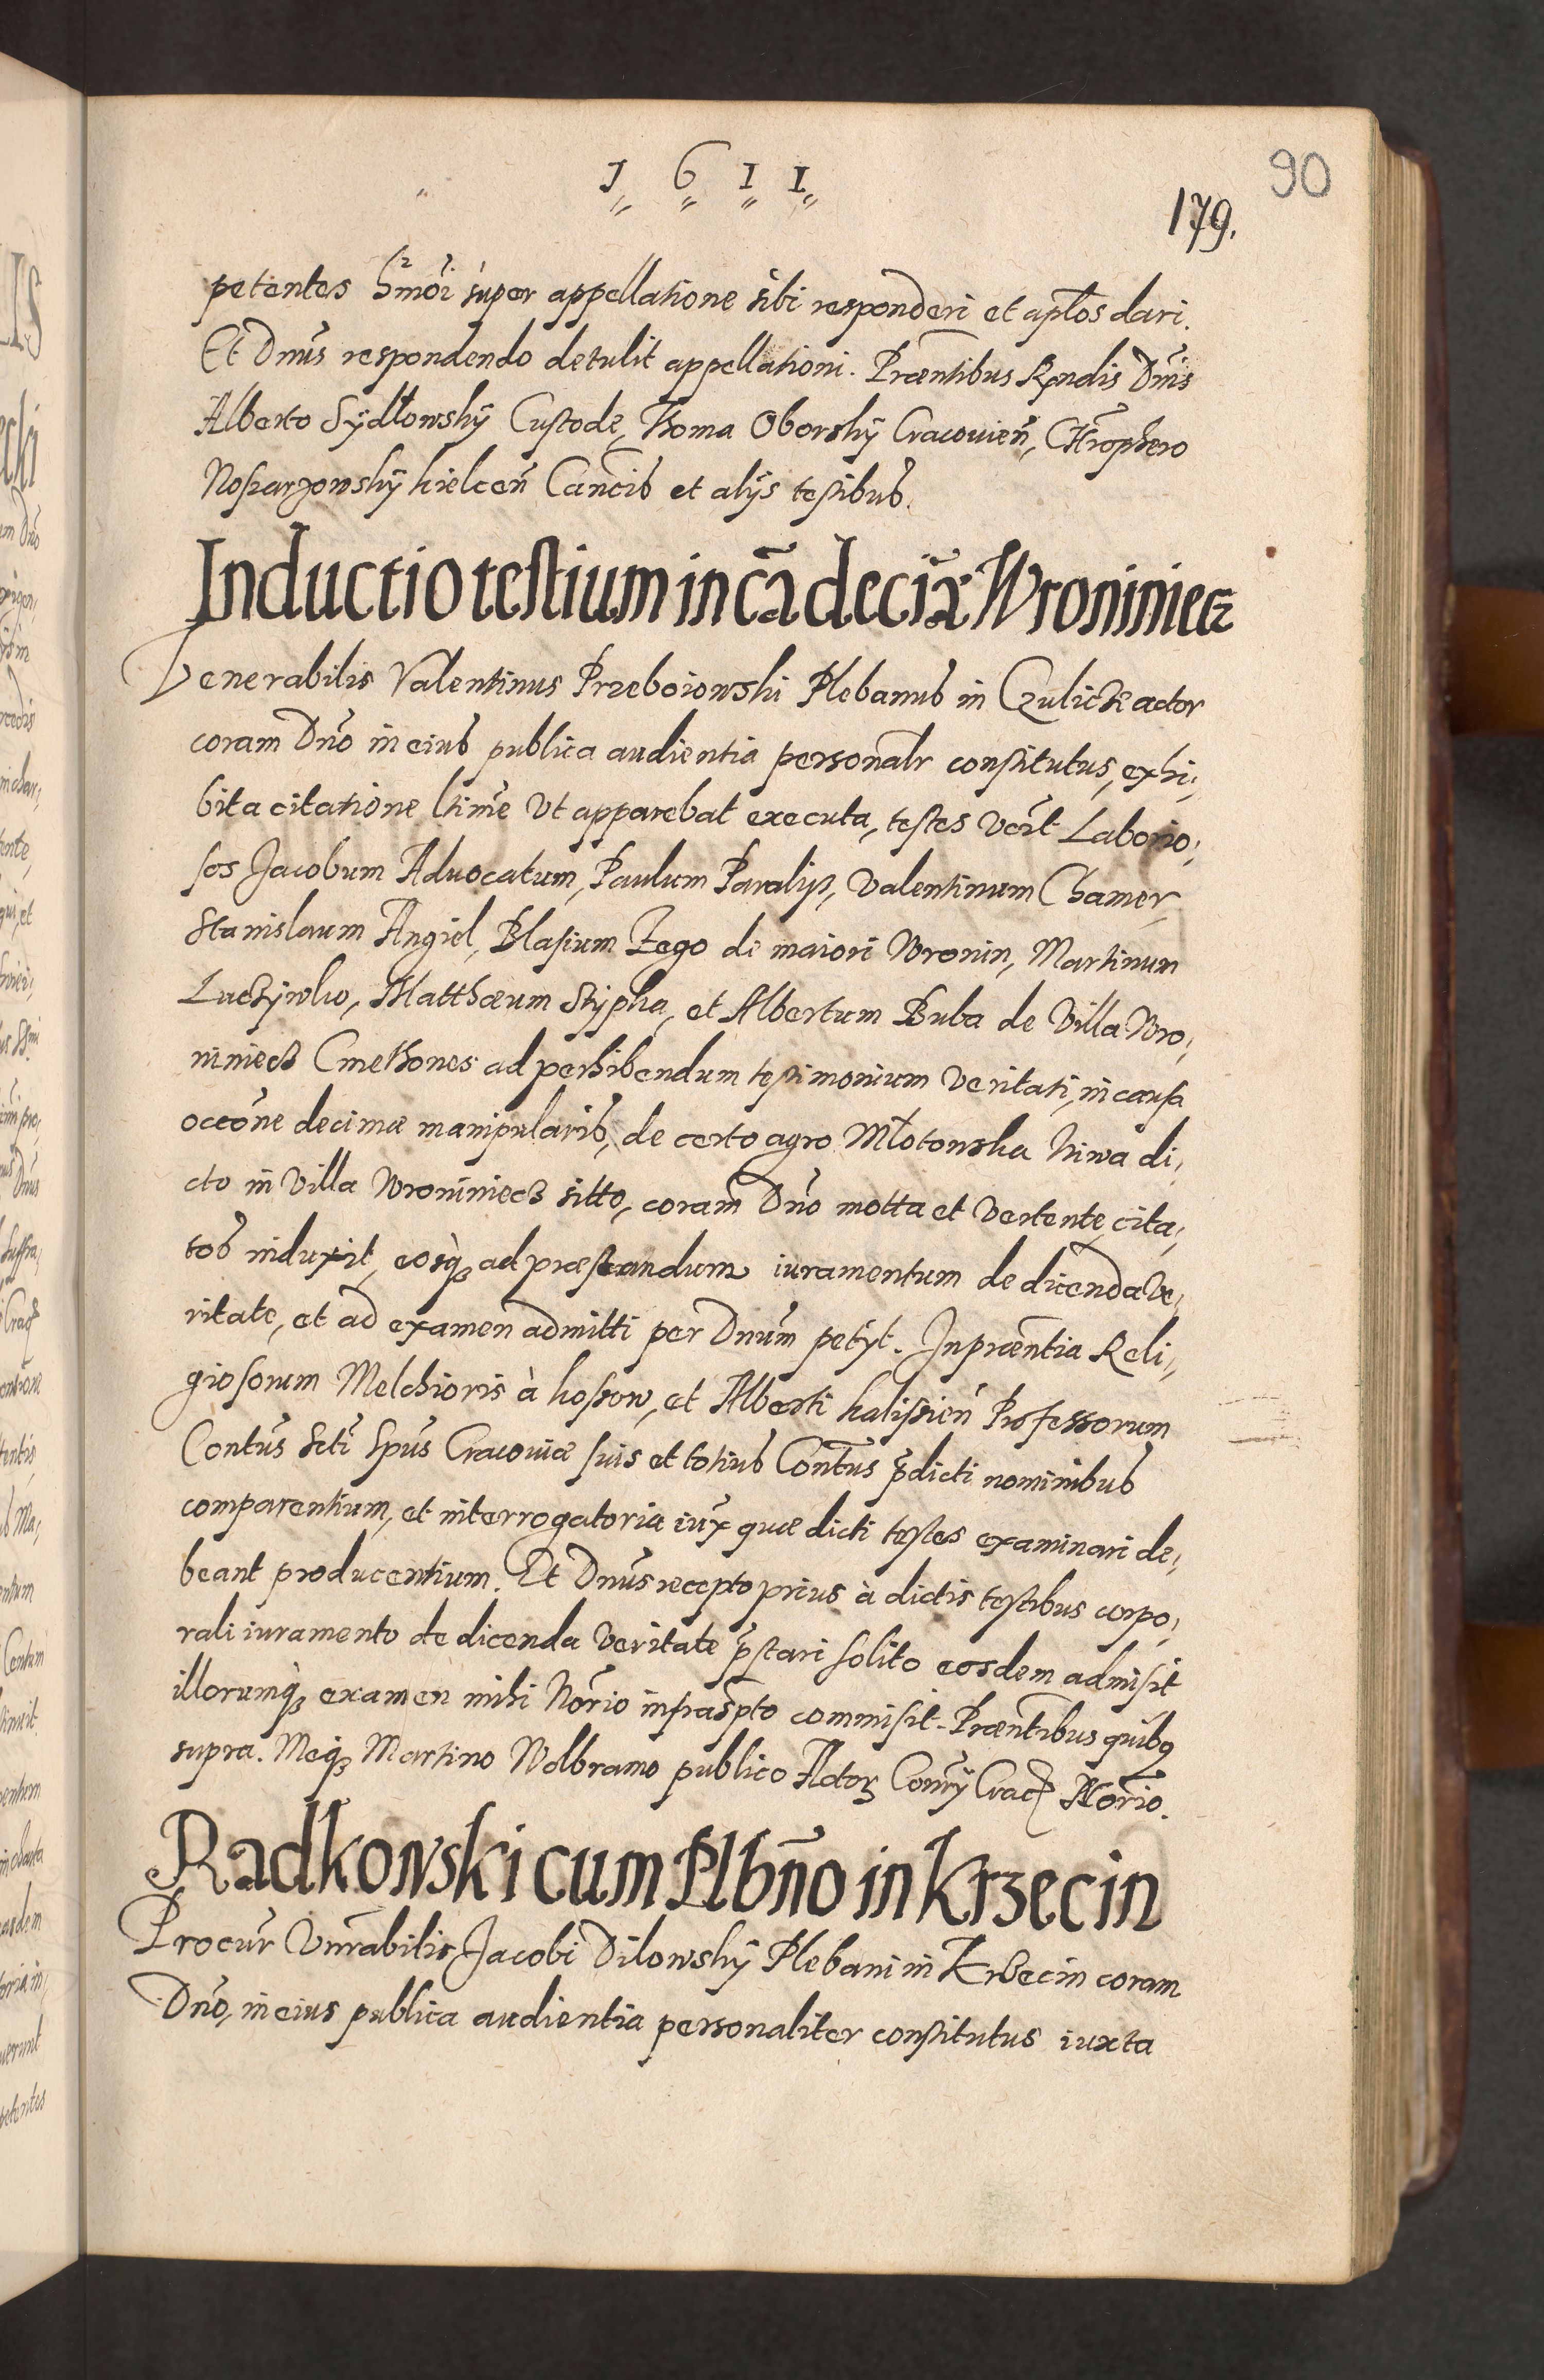 1 6 1 1
90
179.
petentes hmõi super appellatione sibi responderi et aptos dari.
Et Dnus respondendo detulit appellationi. Præntibus Rndis Dnis
Alberto Sydłowskÿ Custode, Thoma Oborskÿ Cracouien, Chrophero
Noskarzowskÿ kielcen Cancis et alÿs testibus.
Inductio testium in cã decia Wroniniecz
Venerabilis Valentinus Przeboiowski Plebanus in Czulicze actor
coram Dno in eius publica audientia personalr constitutus, exhi,
bita citatione ltime vt apparebat executa, testes vcilt Laborio,
sos Jacobum Aduocatum, Paulum Paralis, Valentinum Chamer,
Stanislaum Angiel, Blasium Zego de maiori Wronin, Martinum
Matthæum Stÿpka, et Albertum Buba de Villa Wro,
niniecz Cmethones ad perhibendum testimonium veritati, in causa
occõne decimæ manipularis, de certo agro Młotowska Niwa di,
cto in Villa Wroniniecz sitto, coram Dno motta et vertente, cita,
tos induxit, eosq; ad præstandum iuramentum de dicenda ve,
ritate, et ad examen admitti per Dnum petÿt. In præntia Reli,
giosorum Melchioris à kossow, et Alberti kalissien Professorum
Contus Scti Spus Cracouiæ suis et totius Contus p̃dicti nominibus
comparentium, et interrogatoria iux quæ dicti testes examinari de,
beant producentium. Et Dnus recepto prius à dictis testibus corpo,
rali iuramento de dicenda veritate p̃stari solito eosdem admisit
illorumq; examen mihi Norio infraspto commisit. Præntibus quibq
supra. Meq; Martino Wolbramo publico Actor Conrÿ Crac Norio.
Radkowski cum Plbño in Krzecin
Procur Vnrabilis Jacobi Dilowskÿ Plebani in Krzecin coram
Dno, in eius publica audientia personaliter constitutus iuxta